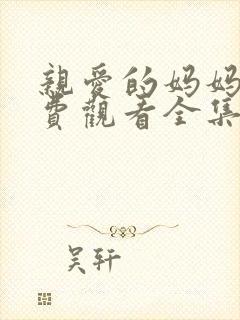 親愛的妈妈
費觀看全集
吴轩